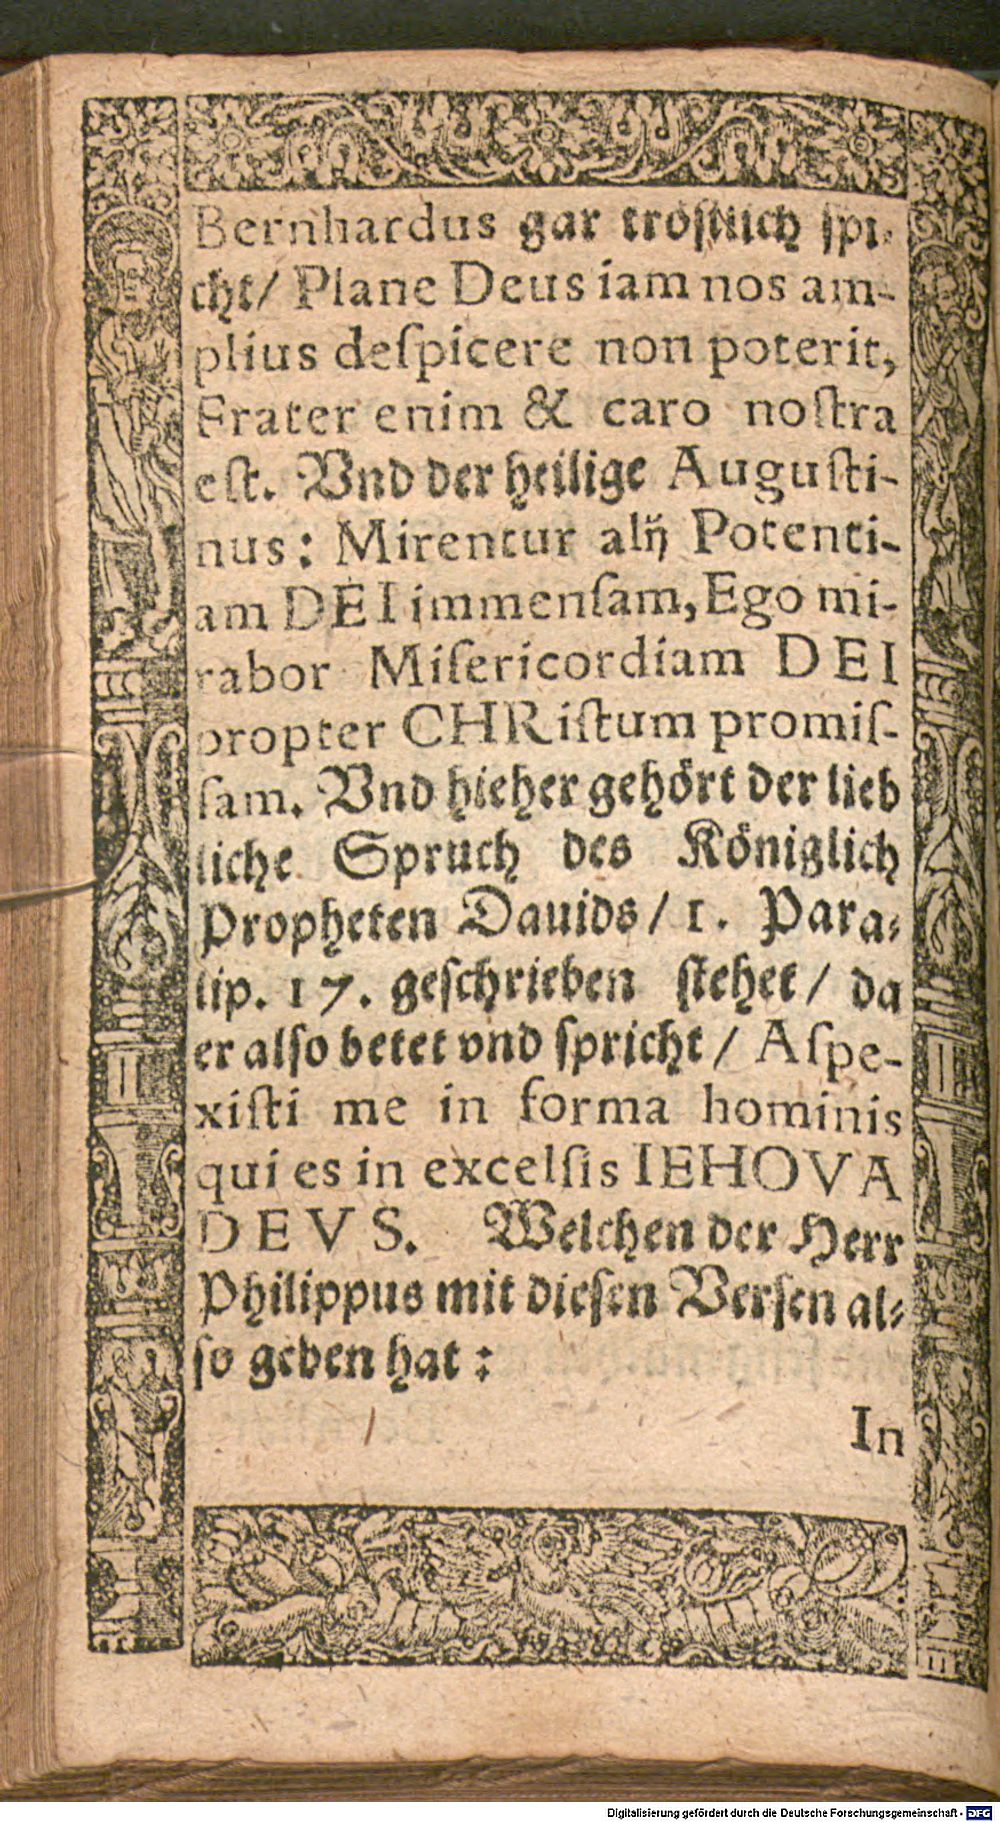 Bernhardus gar tröſtlich ſpri-
cht/ Plane Deus iam nos am-
plius deſpicere non poterit,
Frater enim & caro noſtra
eſt. Vnd der heilige Auguſti-
nus: Mirentur alij Potenti-
am DEI immenſam, Ego mi-
rabor Miſericordiam DEI
propter CHRiſtum promiſ-
ſam. Vnd hieher gehört der lieb
liche Spruch des Königlich
Propheten Dauids/ 1. Para-
lip. 17. geſchrieben ſtehet/ da
er alſo betet vnd ſpricht/ Aſpe-
xiſti me in forma hominis
qui es in excelſis IEHOVA
DEVS. Welchen der Herr
Philippus mit dieſen Verſen al-
ſo geben hat:
In
Digitalisierung gefördert durch die Deutsche Forschungsgemeinschaft - DFG